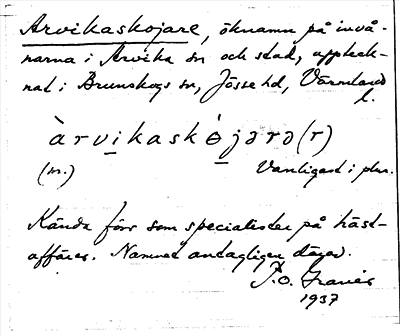 Arvikaskojare, öknamn på invå-
narna i Arvika sn och stad, uppteck-
nat i Brunskogs sn, Jösse hd, Värmland
l.
àrvikaskòjərə(r)
(m.) Vanligast i plur.
Kända förr som specialister på häst-
affärer. Namnet antagligen därav.
P.O. 
1937